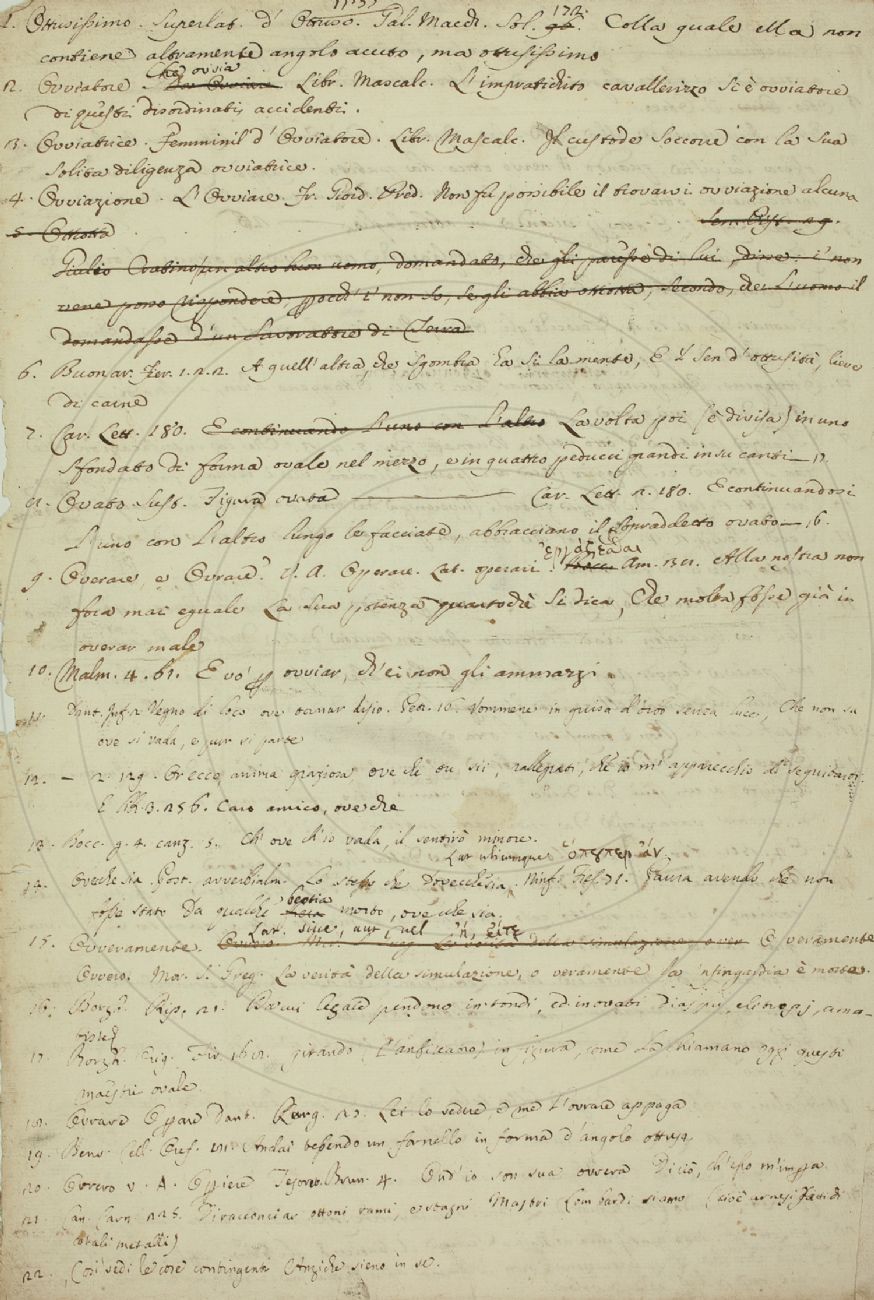 1. Ottusissimo. Superlat. d' Ottuso. Gal. Macch. Sol. 172. Colla quale ella non
contiene altramente angolo acuto, ma ottusissimo
2. Ovviatore. Che ovvia Libr. Mascalc. L'impratichito cavallerizzo si è ovviatore
di questi disordinati accidenti.
3. Ovviatrice. Femminil d' Ovviatore. Libr. Mascalc. Il custode soccorre con la sua
solita diligenza ovviatrice.
4. Ovviazione. L'Ovviare Fr. Giord. Pred. Non fu possibile il trovarvi ovviazione alcuna
5. Ottotta
un altro uomo, domandato, che gli paresse di lui, disse: i' non
viene posso rispondere i' non so, se gli abbia ottotta, secondo, che l'uomo il
domandasse d'un Lavoratore di Terra
6. Buonar. Fier. 1. 2. 2. A quell' altra, che sgombra ha sì la mente, E 'l sen d'ottusità, lieve
di carne
7. Car. Lett. 180. E continuando l'uno con l'altro La volta poi (è divisa) in uno
sfondato di forma ovale nel mezzo, e in quattro peducci grandi in su canti
Ovato Sust. Figura ovata Car. Lett. 2. 180. E continuandosi
l'uno con l'altro lungo le facciate, abbracciano il sopraddetto ovato 16.
9. Overare, e Ovrare. V. A. Operare. Lat. operari. Am. Alla nostra non
fora mai eguale La sua potenza quantochè si dica, Che molta fosse già in
overar male
10. Malm. 4. 61. E vo' ovviar, ch'ei non gli ammazzi.
11. Dant. Inf. 2. Vegno di loco ove tornar disio. Petr. 16. Vommene in guisa d'orbo senza luce, Che non sa
ove si vada, e pur si parte
12. — 2. 129. anima graziosa ove che tu sii, rallegrati, che io m'apparecchio di seguitarti
E 3. 256. Caro amico, ove che
13. Bocc. g. 4. canz. 5. Ch' ove ch'io vada, il sentirò minore.
Lat. ubicumque
14. Ovechesia Post. avverbialm. Lo stesso che Dovechesia. Ninf. Fies. 71. Paura avendo che non
fosse stato Da qualche bestia morto, ove che sia.
Lat. sive, aut, vel ἢ, εἴτε
15. Ovveramente. E veramente
Ovvero. Mor. S. Greg. La verità della simulazione, o veramente la infingardia è morta.
16. Borgh. Rip. 21. legate pendono in tondi, ed in ovati Diaspri, elitropi, ama-
tiste
17. Borgh. Orig. Fir. girando l'anfiteatro in figura, come la chiamano oggi questi
maestri ovale
18. Ovrare Oprare Dant. Purg. 23. Lei lo vedere, e me l'ovrare appaga
19. Benv. Cell. Oref. Andai bevendo un farnello in forma d'angolo ottuso
20. Ovvero v. A. Tesoret. Brun. 4. Ond'io son sua ovvera Di ciò, ch'esso m'impera
21. Can. Carn. 226. Di racconciar ottoni rami, e stagni Mastri Lombardi siamo (cioè arnesi fatti di
cotali metalli)
22. Così vedi le cose contingenti Anziche sieno in se.